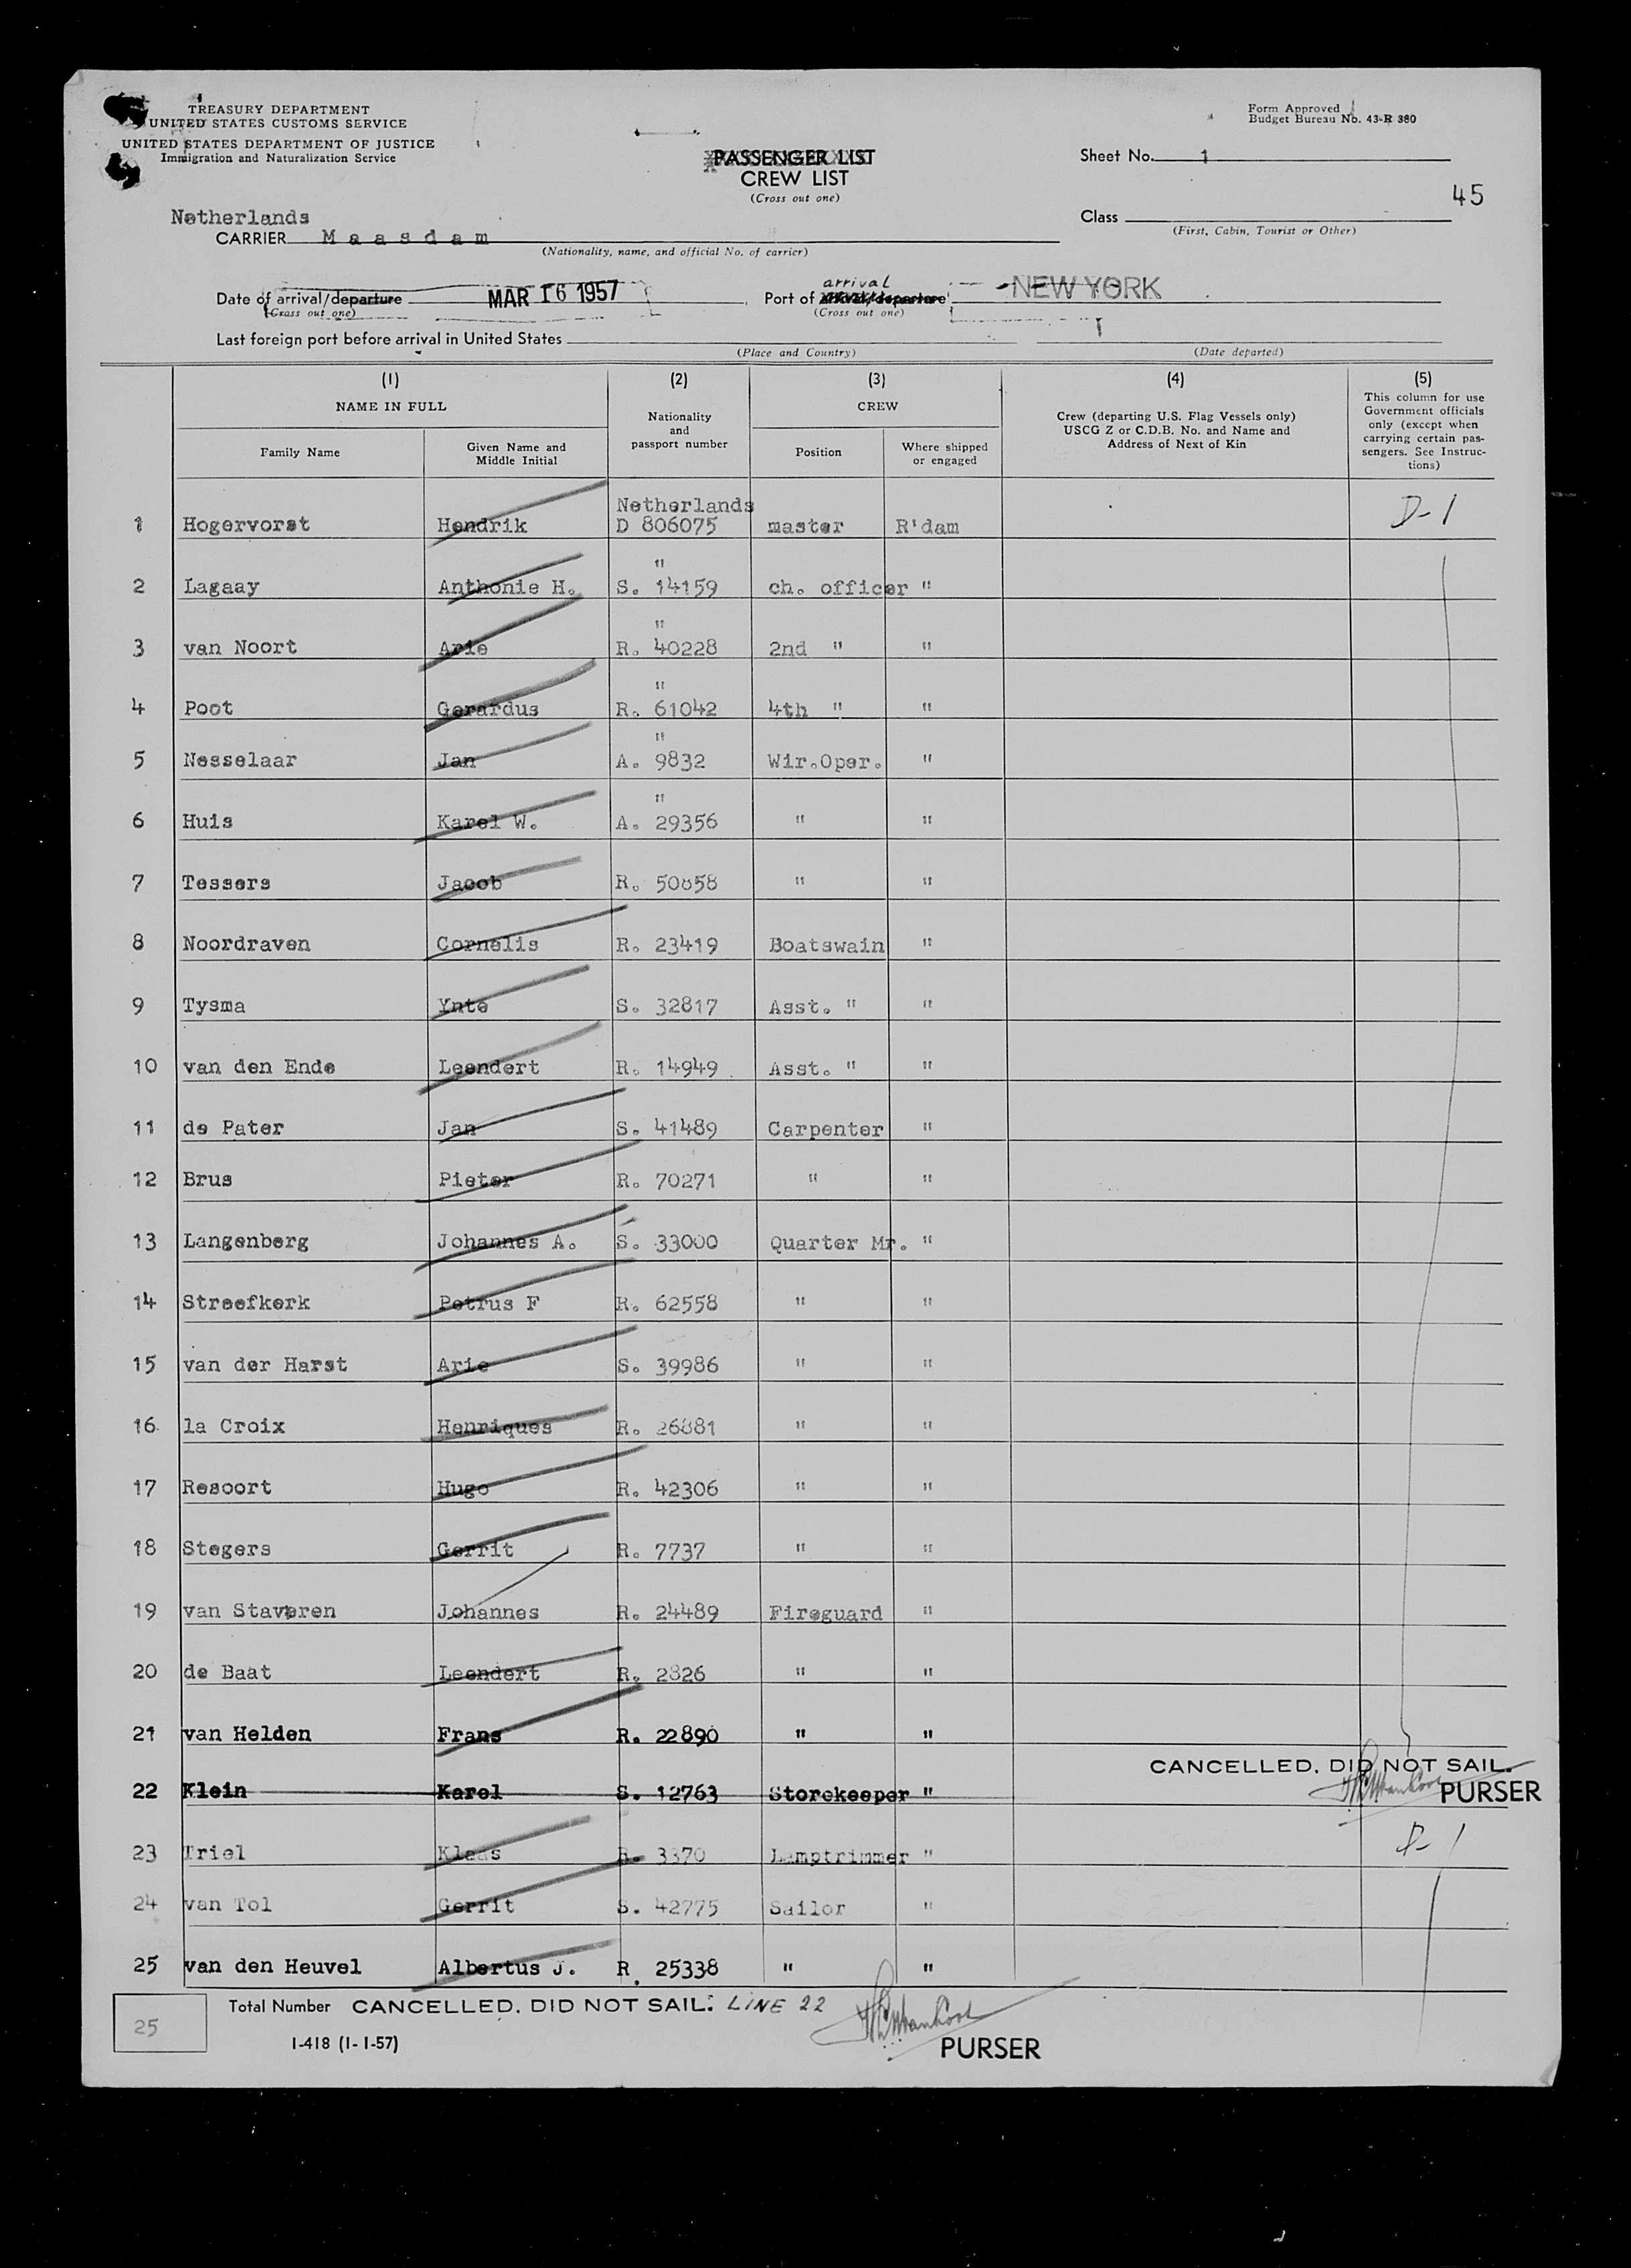 TREASURY DEPARTMENT
UNITED STATES CUSTOMS SERVICE
UNITED STATES DEPARTMENT OF JUSTICE
Immigration and Naturalization Service
Form Approved
Budget Bureau No. 43-R 380
PASSENGER LIST
CREW LIST
(Cross out one)
Sheet No. 1
45
Class
(First, Cabin, Tourist or Other)
Netherlands
CARRIER Maasdam
(Nationality, name, and official No. of carrier)
Date of arrival/departure MAR 16 1957
(Cross out one)
arrival
Port of arrival/departure NEW YORK
(Cross out one)
Last foreign port before arrival in United States
(Place and Country)
(Date departed)
(1) (2) (3) (4) (5)
NAME IN FULL
Family Name
Given Name and Middle Initial
Nationality and passport number
CREW
Position
Where shipped or engaged
Crew (departing U.S. Flag Vessels only)
USCG Z or C.D.B. No. and Name and
Address of Next of Kin
This column for use
Government officials
only (except when
carrying certain pas-
sengers. See Instruc-
tions)
Netherlands
1 Hogervorst Hendrik D 806075 master R'dam D-1
"
2 Lagaay Anthonie H. S. 14159 ch. officer "
"
3 van Noort Arie R. 40228 2nd " "
"
4 Poot Gerardus R. 61042 4th " "
"
5 Nesselaar Jan A. 9832 Wir.Oper. "
"
6 Huis Karel W. A. 29356 " "
7 Tessers Jacob R. 50858 " "
8 Noordraven Cornelis R. 23419 Boatswain "
9 Tysma Ynte S. 32817 Asst. " "
10 van den Ende Leendert R. 14949 Asst. " "
11 de Pater Jan S. 41489 Carpenter "
12 Brus Pieter R. 70271 " "
13 Langenberg Johannes A. S. 33000 Quarter Mr. "
14 Streefkerk Petrus F R. 62558 " "
15 van der Harst Arie S. 39986 " "
16 la Croix Henriques R. 26881 " "
17 Resoort Hugo R. 42306 " "
18 Stegers Gerrit R. 7737 " "
19 van Staveren Johannes R. 24489 Fireguard "
20 de Baat Leendert R. 2826 " "
21 van Helden Frans R. 22890 " "
CANCELLED. DID NOT SAIL.
22 Klein Karel S. 12763 Storekeeper " PURSER
23 Triel Klaas R. 3370 Lamptrimmer " D-1
24 van Tol Gerrit S. 42775 Sailor "
25 van den Heuvel Albertus J. R. 25338 " "
25 Total Number CANCELLED. DID NOT SAIL. LINE 22
I-418 (1-1-57)
PURSER